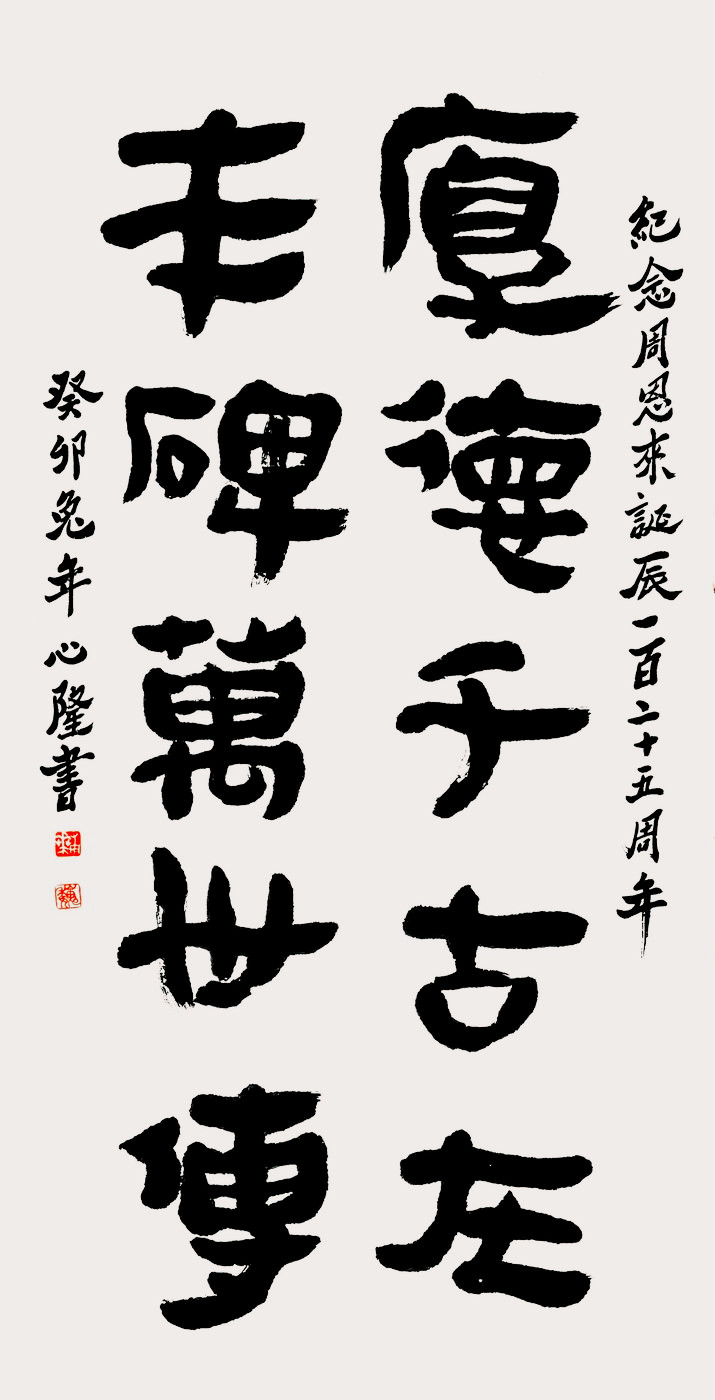 紀念周恩來誕辰一百二十五周年
厚德千古在
丰碑萬世傳
癸卯兔年心隆書